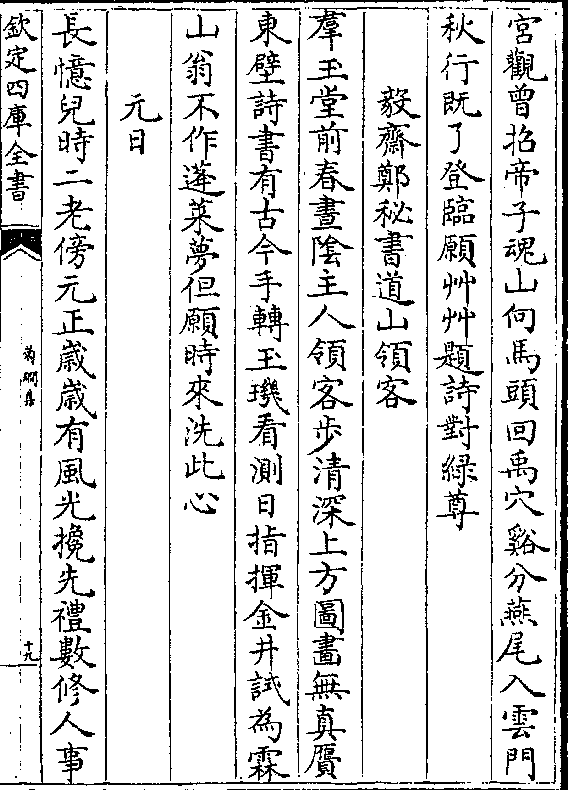 宮觀曾招帝子魂山向馬頭回禹穴谿分燕尾入雲門
秋行既了登臨願艸艸題詩對緑尊
毅齋鄭秘書道山領客
羣玉堂前春晝隂主人領客歩清深上方圖畫無真贋
東壁詩書有古今手轉玉璣看測日指揮金井試為霖
山翁不作蓬萊夢但願時來洗此心
元日
長憶兒時二老傍元正歳歳有風光攙先禮數修人事
欽定四庫全書
菊磵集
十九